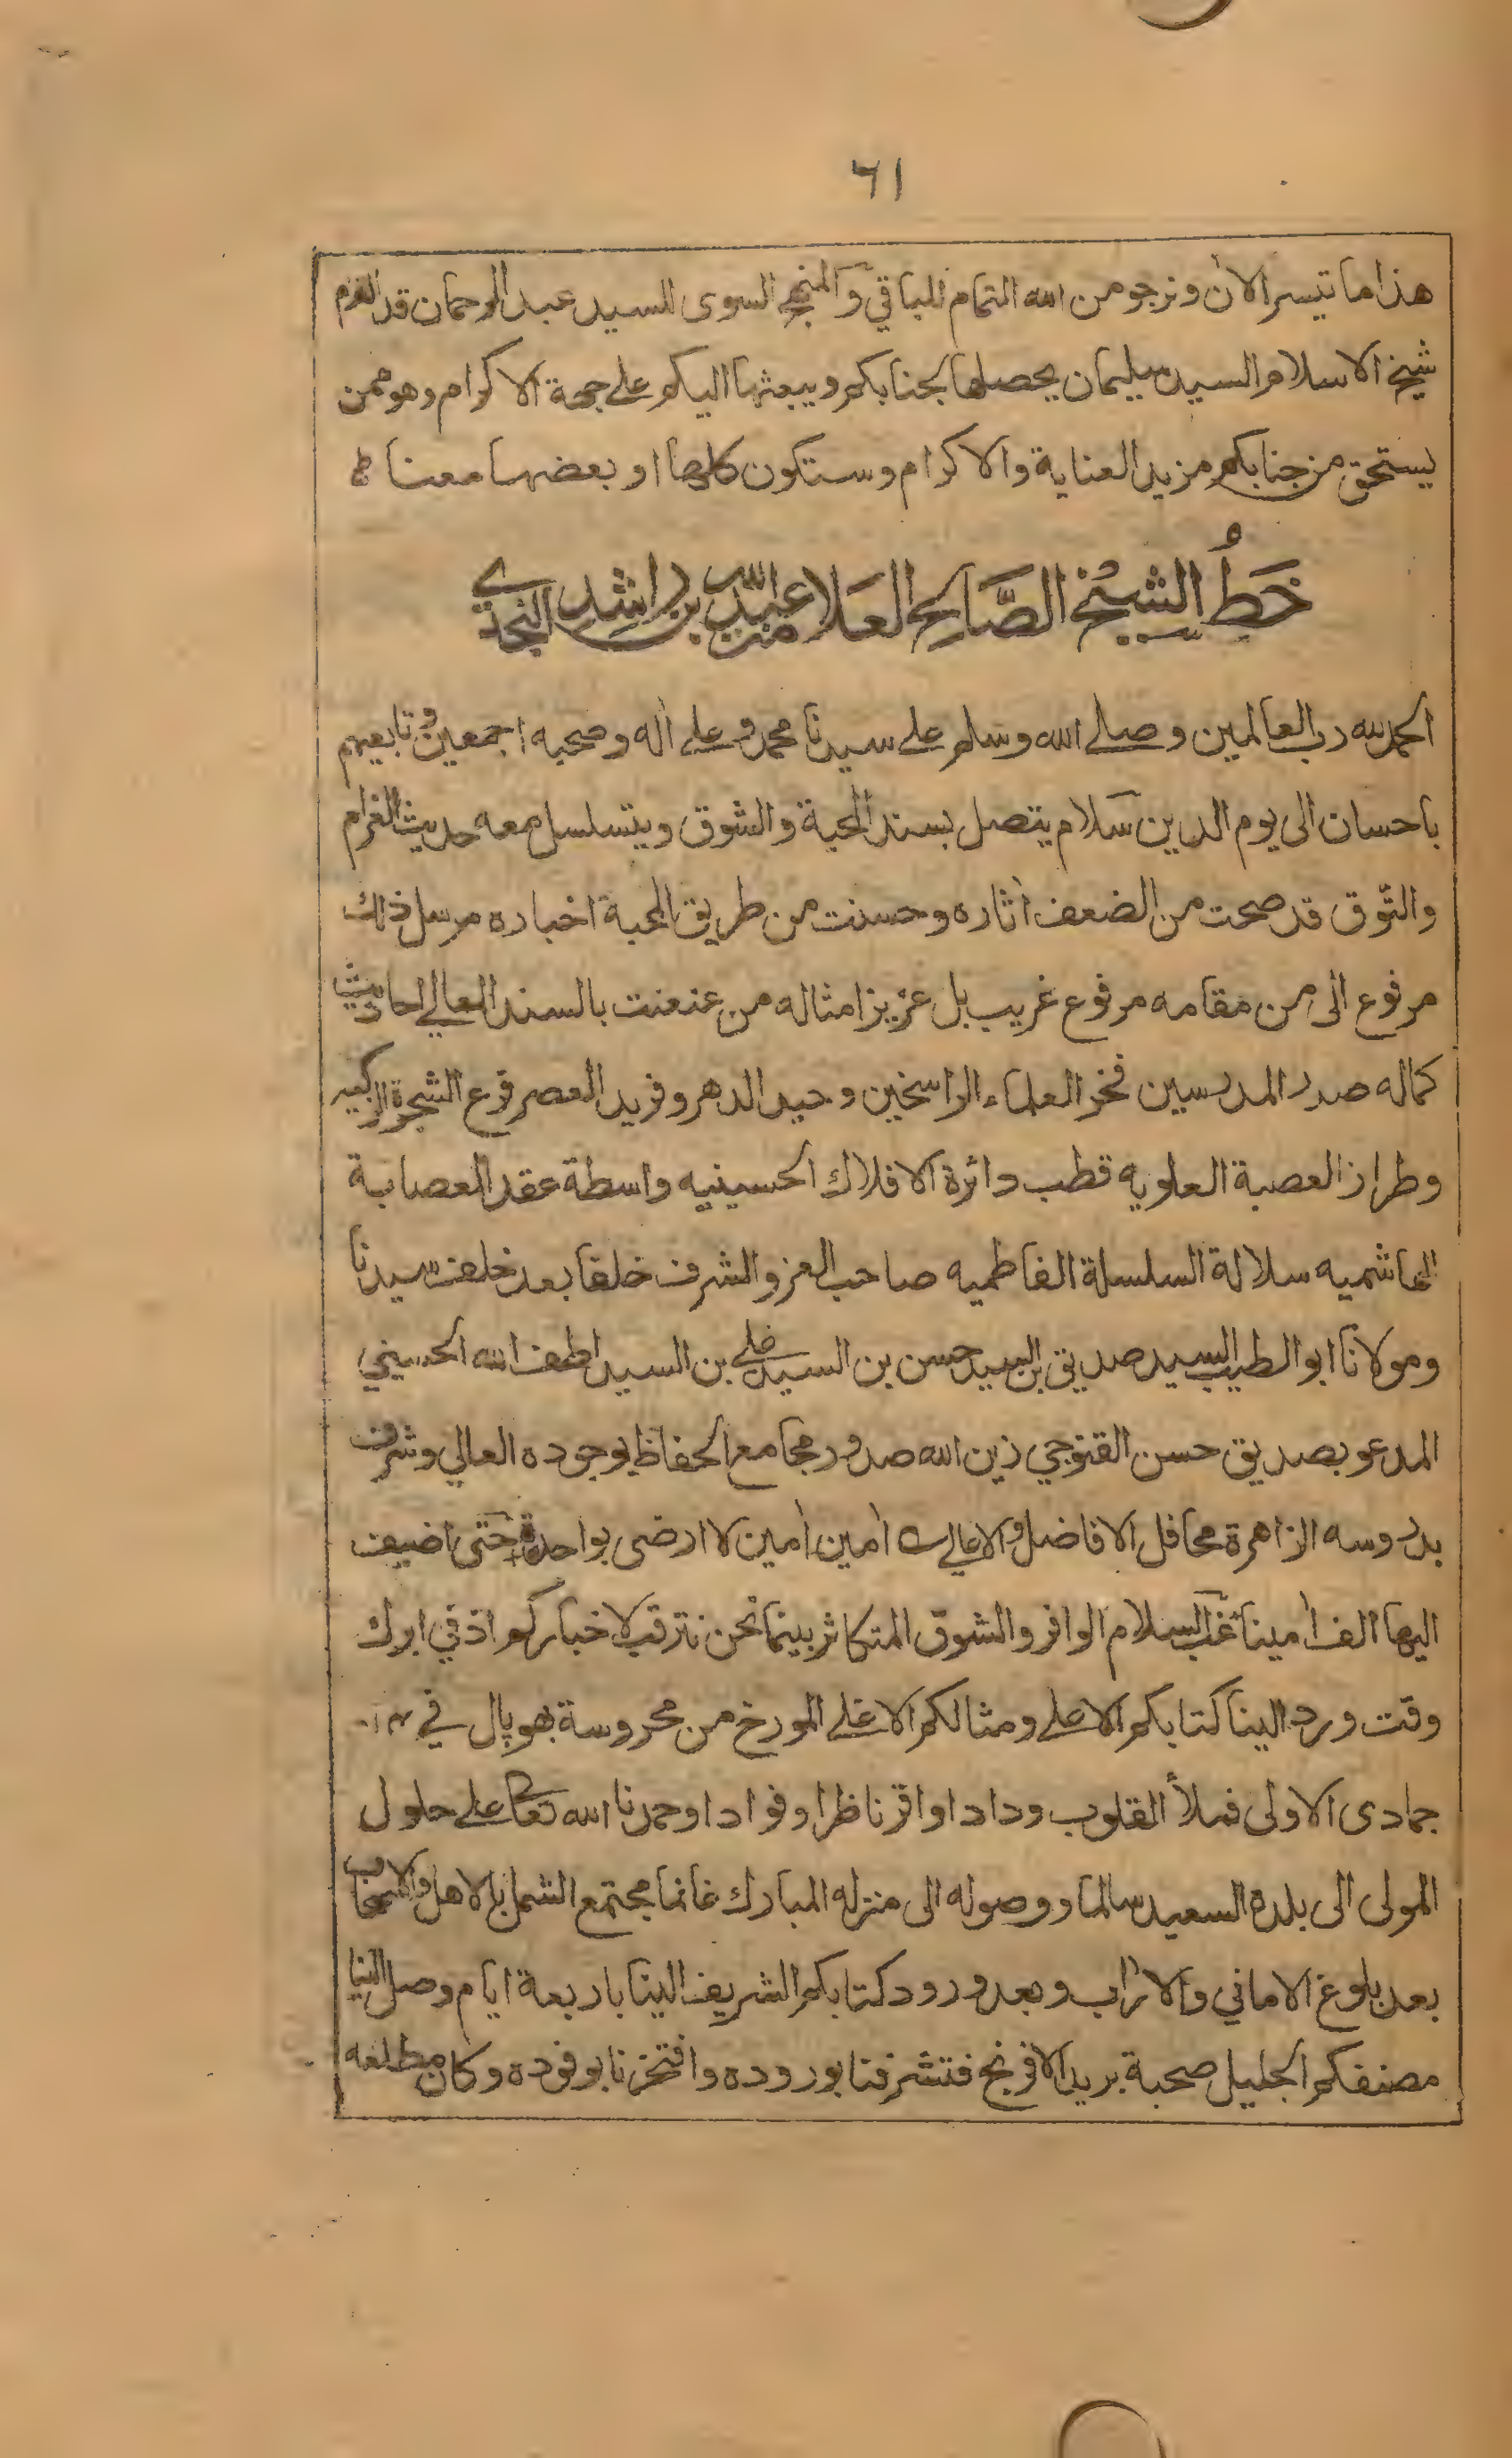 ٦١
هذا ما تيسر الآن ونرجو من الله التمام للباقي والمنهج السوى للسيد عبد الرحمان قد التزم
شيخ الاسلام السيد سليمان يحصلها لجنابكم ويبعثها اليكم على جهة الاكرام وهو ممن
يستحق من جنابكم مزيد العناية والاكرام وستكون كلها او بعضها معنا
خَطُّ الشيخ الصَّالح العَلامة عبد الله بن راشد النجدي
الحمد لله رب العالمين وصلى الله وسلم على سيدنا محمد وعلى اله وصحبه اجمعين وتابعيهم
باحسان الى يوم الدين سلام يتصل بسند المحبة والشوق ويتسلسل معه حديث الغرام
والتّوق قد صحت من الضعف اثاره وحسنت من طريق المحبة اخباره مرسل ذلك
مرفوع الى من مقامه مرفوع غريب بل عزيز امثاله من عنعنت بالسند العالي احاديث
كماله صدر المدرسين فخر العلماء الراسخين وحيد الدهر وفريد العصر فرع الشجرة الزكيه
وطراز العصبة العلويه قطب دائرة الافلاك الحسينيه واسطة عقد العصابة
الهاشميه سلالة السلسلة الفاطميه صاحب العز والشرف خلفا بعد خلف سيدنا
ومولانا ابو الطيب السيد صديق بن السيد حسن بن السيد علي بن السيد لطف الله الحسيني
المدعو بصديق حسن القنوجي زين الله صدور مجامع الحفاظ بوجوده العالي وشرف
بدروسه الزاهرة محافل الافاضل والاعالي امين امين لا ارضى بواحدة حتى اضيف
اليها الف امينا غب السلام الوافر والشوق المتكاثر بينما نحن نترقب لاخباركم اذ في ابرك
وقت ورد الينا كتابكم الاعلى ومثالكم الاغلى المورخ من محروسة بهوپال في
جمادى الاولى فملأ القلوب ودادا واقر ناظرا وفوادا وحمدنا الله تعالى على حلول
المولى الى بلدة السعيد سالما ووصوله الى منزله المبارك غانما مجتمع الشمل بالاهل والاصحاب
بعد بلوغ الاماني والآراب وبعد ورود كتابكم الشريف الينا باربعة ايام وصل الينا
مصنفكم الجليل صحبة بريد الافرنج فتشرفنا بوروده وافتخرنا بوفوده وكان مطلعه